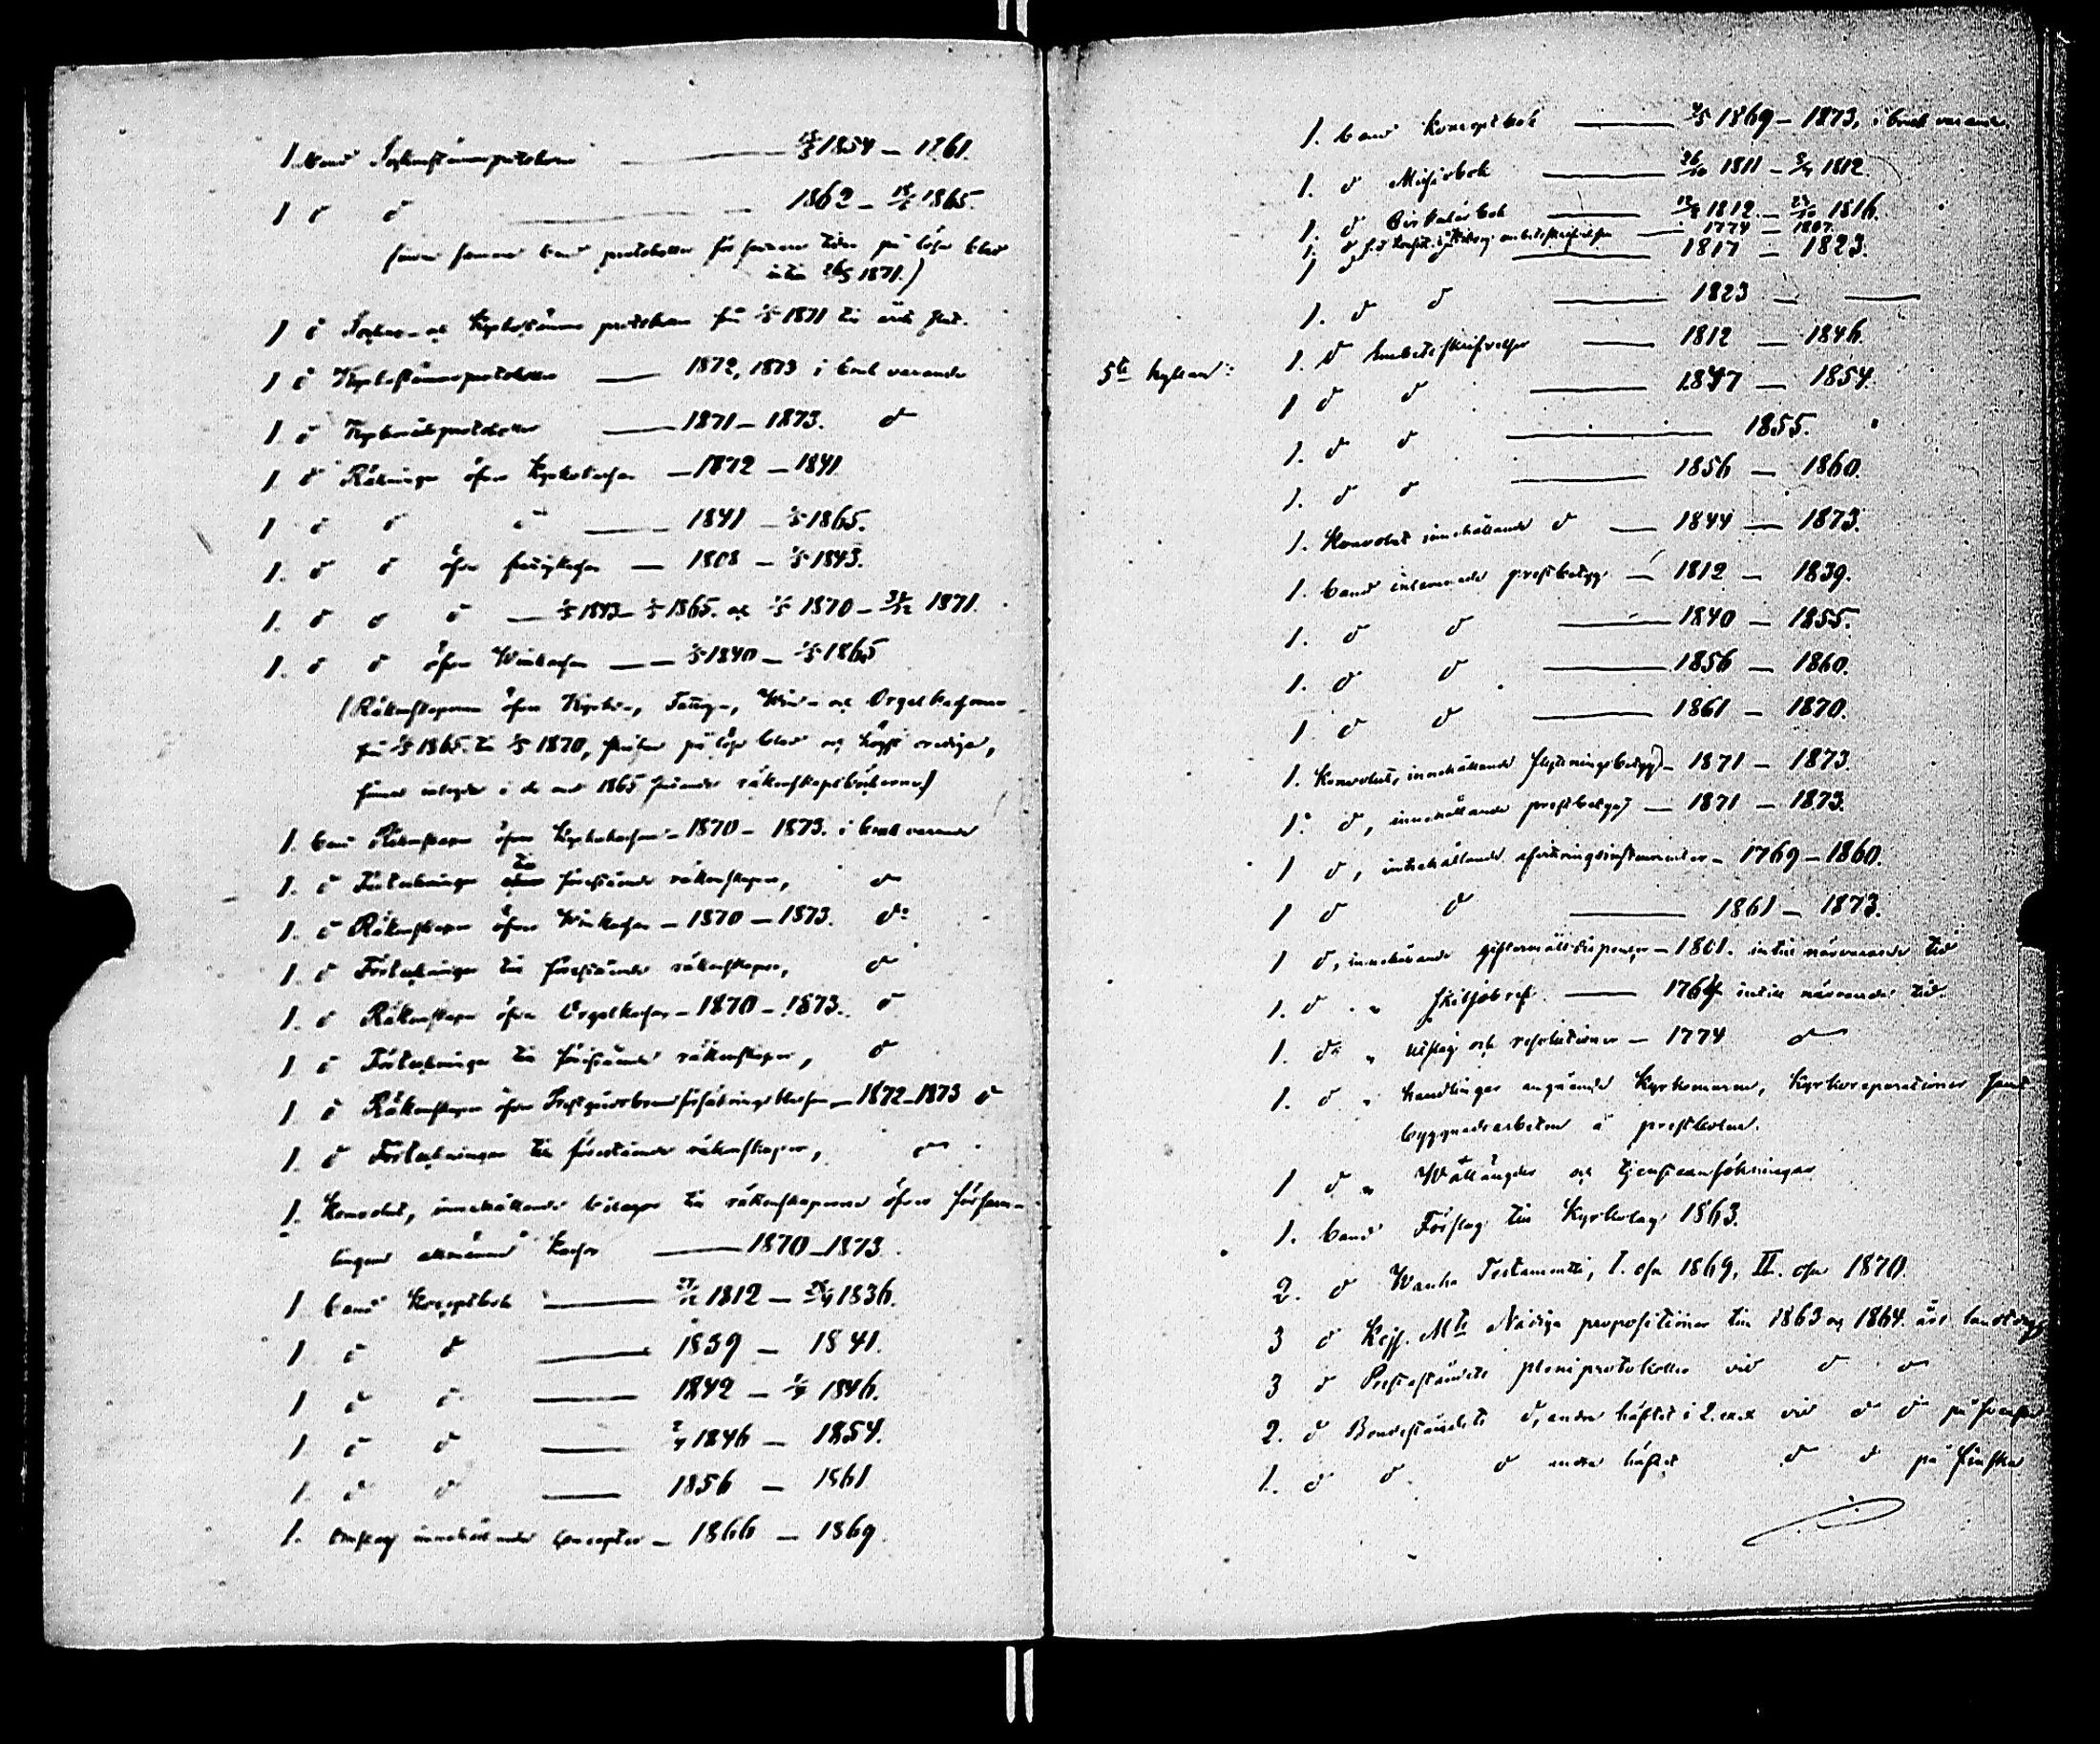 1. band Sockenstämmoprotokoller — 1854 – 1861.
1 d d — 1862 – 1865.
samma band protokoller för senare tider på lösa blad
intill 1871.)
1 d Socken- och Kyrkostämmo protokoller från 1/5 1871 till
1 d Kyrkostämmoprotokoller — 1872, 1873 i bruk varande
1. d Kyrkorådsprotokoller — 1871 – 1873. d
1. d Räkningar öfver Kyrkokassan — 1872 – 1841
1 d d d — 1841 – 1/5 1865.
1. d d öfver fattigkassan — 1808 – 1/5 1843.
1. d d d — 1/5 1843 – 1/5 1865. och 1/5 1870 – 31/12 1871.
1. d d öfver Winkassan — 1/5 1840 – 1/5 1865
(Räkenskaperna öfver Kyrko-, Fattig-, Win- och Orgelkassorna
från 1/5 1865 till 1/5 1870, på lösa blad och högst orediga,
finnas inlagda i de med 1865 räkenskapsböckerna.)
1. band Räkenskaper öfver Kyrkokassan – 1870 – 1873. i bruk varande
1. d Förteckningar till förestående räkenskaper, d
1. d Räkenskaper öfver Winkassan – 1870 – 1873. d:
1. d Förteckningar till förestående räkenskaper, d
1. d Räkenskaper öfver Orgelkassan – 1870 – 1873. d
1. d Förteckningar till förestående räkenskaper, d
1. d Räkenskaper öfver – 1872–1873 d
1. d Förteckningar till förestående räkenskaper, d
1. Konvolut, innehållande bilagor till räkenskaperna öfver försam-
lingens allmänna kassor — 1870–1873.
1 band Konceptbok — 1812 – 1836.
1 d d — 1839 – 1841.
1 d d — 1842 – 1846.
1 d d — 1846 – 1854.
1. d d — 1856 – 1861
1. Omslag innehållande koncepter – 1866 – 1869.
1. band Konceptbok — 1869 – 1873, i bruk varande.
1. d Missivbok — 26/10 1811 – 1812.
1. d Cirkulärbok — 1812. – 1816.
1. d embetsskrifvelser — 1774 – 1807.
1 d — 1817 – 1823.
1. d d — 1823 – —
5te hyllan: 1. d Embetsskrifvelser — 1812 – 1846.
1 d d — 1847 – 1854.
1. d d — 1855.
1. d d — 1856 – 1860.
1. Konvolut innehållande d — 1844 – 1873.
1. band inlemnade prestbetyg – 1812 – 1839.
1. d d — 1840 – 1855.
1. d d — 1856 – 1860.
1. d d — 1861 – 1870.
1. Konvolut, innehållande flyttningsbetyg – 1871 – 1873.
1. d, innehållande prestbetyg – 1871 – 1873.
1 d, innehållande afvittringsinstrumenter – 1769 – 1860.
1 d d — 1861 – 1873.
1 d, innehållande giftermålsdispenser – 1801. intill närvarande tid
1. d " skiljobref — 1764 intill närvarande tid.
1. d " utslag och resolutioner – 1774 d
1. d " handlingar angående Kyrkomuren, Kyrkoreparationer samt
byggnadsarbeten å prestbolen.
1 d " Wallängder och tjensteansökningar
1. band Förslag till Kyrkolag 1863.
2. d Wanha Testamentti, I. osa 1869, II. osa 1870.
3 d Kejs. Mts Nådiga propositioner till 1863 och 1864 års landtdag
3 d Presteståndets pleniprotokoller vid d d
2. d Bondeståndets d, andra häftet i 2. ex. vid d d på svenska
1. d d d andra häftet d d på finska